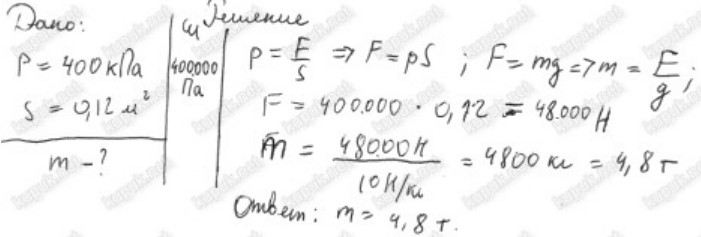 Дано:
P = 400 кПа
S = 0,12 м²
m - ?
СИ
400000
Па
Решение
p = F/S => F = pS ; F = mg => m = F/g ;
F = 400.000 · 0,12 = 48.000 Н
m = 48000 Н / 10 Н/кг = 4800 кг = 4,8 т
Ответ: m = 4,8 т.